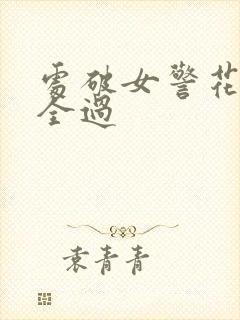 處破女警花
全過
袁青青